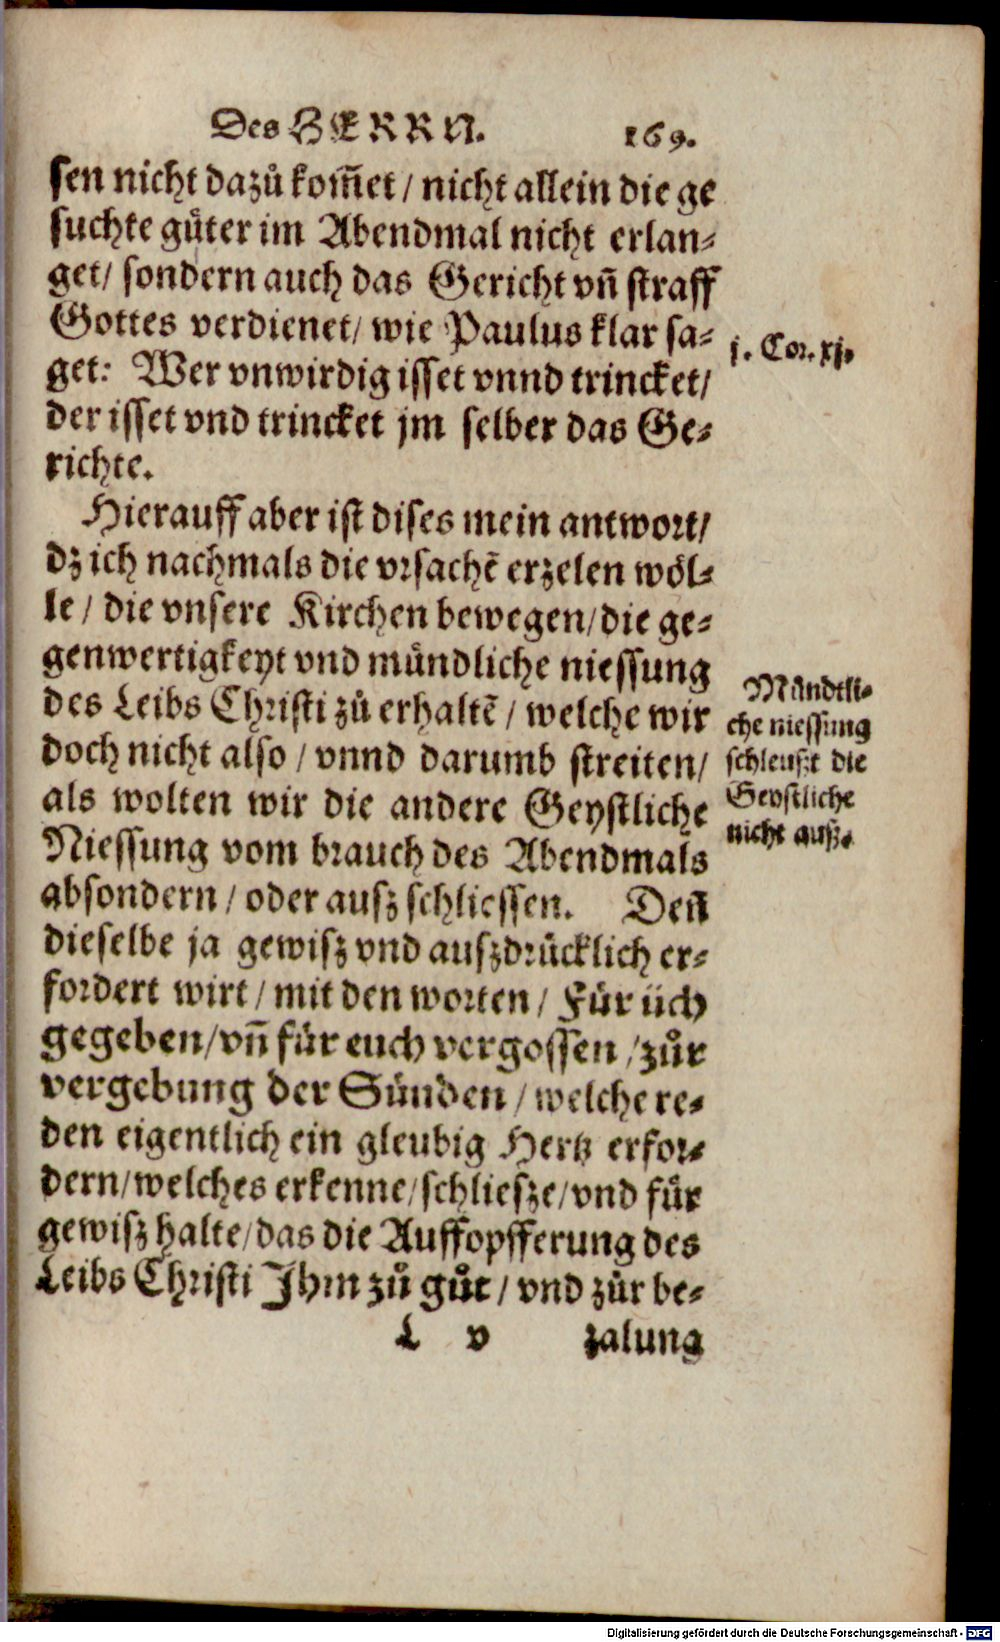 Des HERRN. 169.
sen nicht dazů kom̃et / nicht allein die ge
suchte gu̎ter im Abendmal nicht erlan-
get / sondern auch das Gericht vñ straff
Gottes verdienet / wie Paulus klar sa-
get: Wer vnwirdig isset vnnd trincket /
der isset vnd trincket jm selber das Ge-
richte.
j. Cor. xj.
Hierauff aber ist dises mein antwort /
dz ich nachmals die vrsachẽ erzelen wöl-
le / die vnsere Kirchen bewegen / die ge-
genwertigkeyt vnd mündliche niessung
des Leibs Christi zů erhaltẽ / welche wir
doch nicht also / vnnd darumb streiten /
als wolten wir die andere Geystliche
Niessung vom brauch des Abendmals
absondern / oder ausz schliessen. Deñ
dieselbe ja gewisz vnd auszdrücklich er-
fordert wirt / mit den worten / Für üch
gegeben / vñ für euch vergossen / zůr
vergebung der Sünden / welche re-
den eigentlich ein gleubig Hertz erfor-
dern / welches erkenne / schliesze / vnd für
gewisz halte / das die Auffopfferung des
Leibs Christi Jhm zů gůt / vnd zůr be-
Mündtli-
che niessung
schleuszt die
Geystliche
nicht ausz.
L v zalung
Digitalisierung gefördert durch die Deutsche Forschungsgemeinschaft - DFG